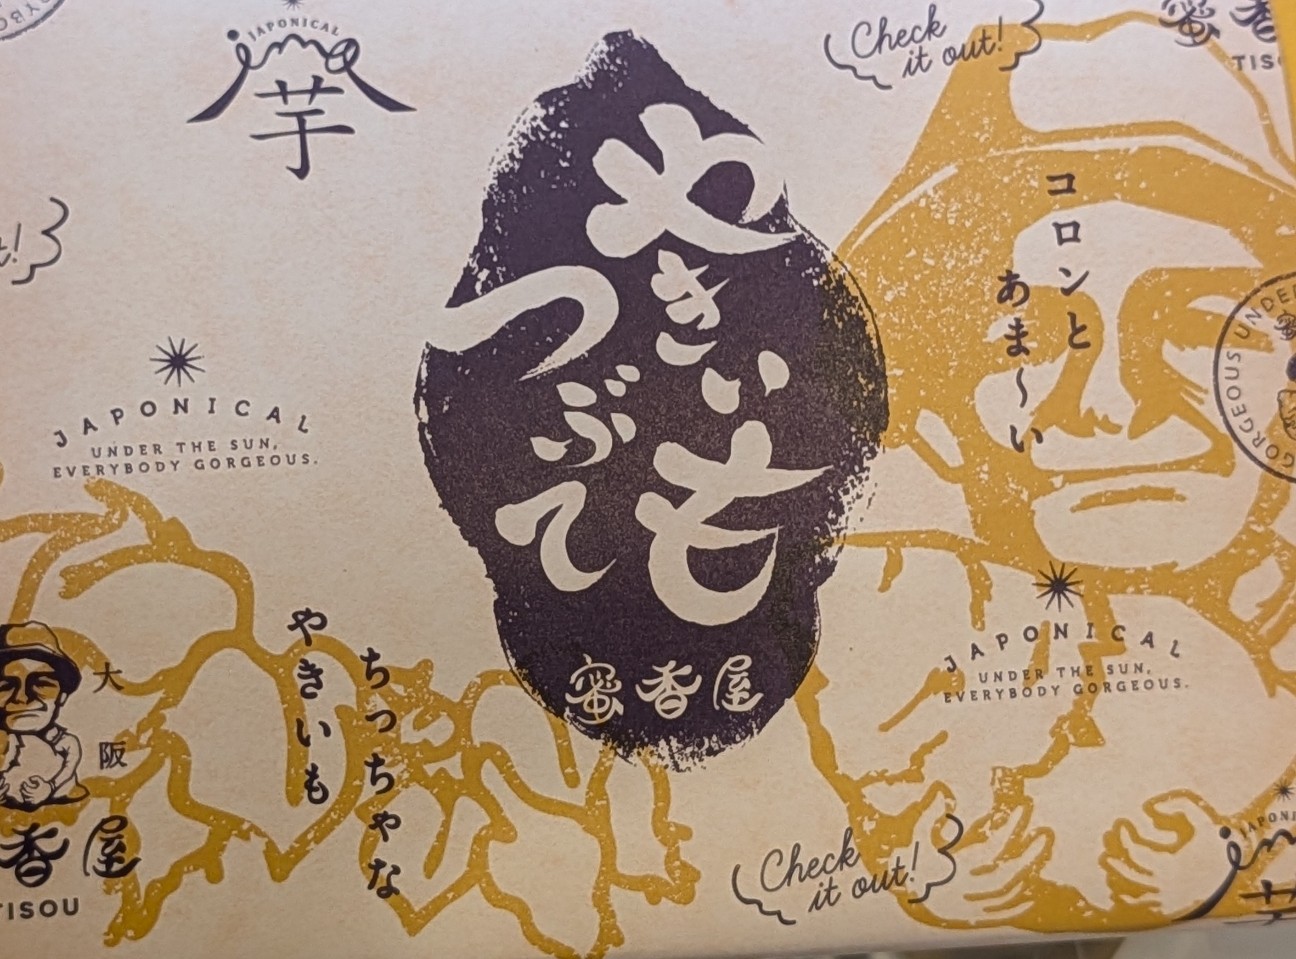 JAPONICAL
imo
芋
Check
it out!
蜜香
TIS
t!
やきいも
つぶて
蜜香屋
コロンと
あま〜い
GORGEOUS UNDER
JAPONICAL
UNDER THE SUN,
EVERYBODY GORGEOUS.
JAPONICAL
UNDER THE SUN,
EVERYBODY GORGEOUS.
大阪
香屋
TISOU
ちっちゃな
やきいも
Check
it out!
JAPONI